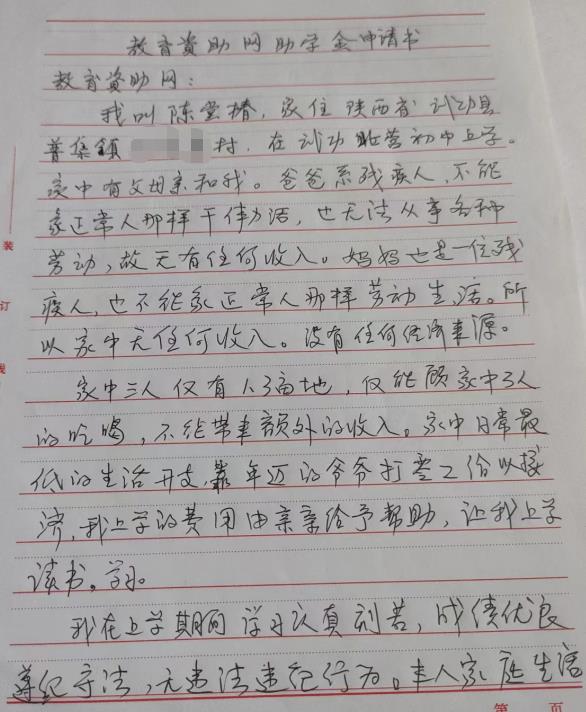 教育资助网助学金申请书
教育资助网：
我叫陈雲椿，家住陕西省武功县
普集鎮 村，在武功 初中上学。
家中有父母亲和我。爸爸系残疾人，不能
象正常人那样干体力活，也无法从事各种
劳动，故无有任何收入。妈妈也是一位残
疾人，也不能象正常人那样劳动生活。所
以家中无任何收入。没有任何经济来源。
家中三人仅有1.3亩地，仅能顾家中3人
的吃喝，不能带来额外的收入。家中日常最
低的生活开支，靠年迈的爷爷打零工份以接
济，我上学的费用由亲亲给予帮助，让我上学
读书。学习。
我在上学期间学习认真刻苦，成绩优良
尊纪守法，无违法违纪行为。本人家庭生活
装
订
线
第 页